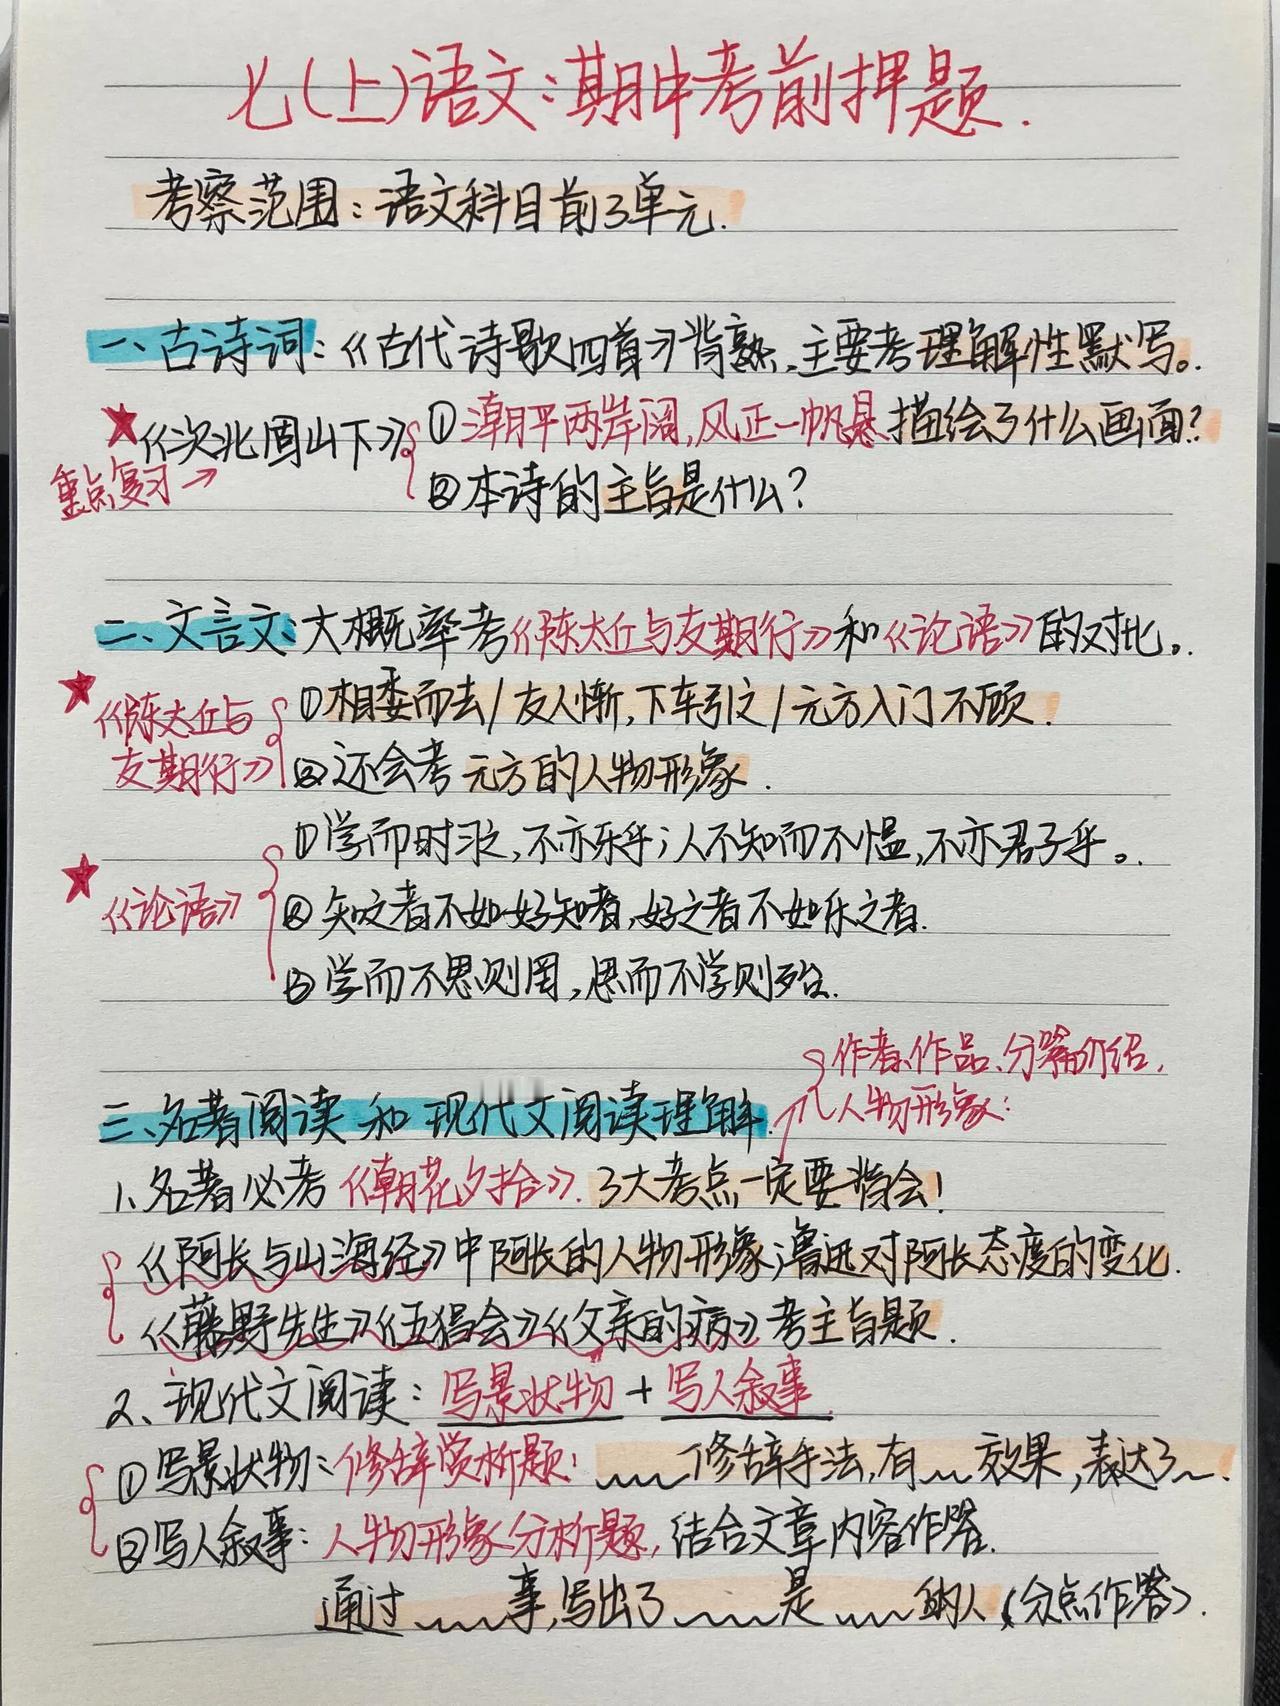 七(上)语文:期中考前押题.
考察范围:语文科目前3单元.
一、古诗词:《古代诗歌四首》背熟、主要考理解性默写。
★《次北固山下》①潮平两岸阔,风正一帆悬描绘了什么画面?
重点复习→ ②本诗的主旨是什么?
二、文言文:大概率考《陈太丘与友期行》和《论语》的对比。
★《陈太丘与友期行》①相委而去/友人惭,下车引之/元方入门不顾.
②还会考元方的人物形象.
①学而时习之,不亦乐乎;人不知而不愠,不亦君子乎。
★《论语》②知之者不如好知者,好之者不如乐之者.
③学而不思则罔,思而不学则殆.
作者、作品、分篇介绍,
人物形象:
三、名著阅读和现代文阅读理解.
1、名著必考《朝花夕拾》.3大考点一定要背会!
《阿长与山海经》中阿长的人物形象;鲁迅对阿长态度的变化.
《藤野先生》《五猖会》《父亲的病》考主旨题.
2、现代文阅读:写景状物+写人叙事
①写景状物:修辞赏析题: 修辞手法,有 效果,表达了 .
②写人叙事:人物形象分析题,结合文章内容作答.
通过 事,写出了 是 的人(分点作答).